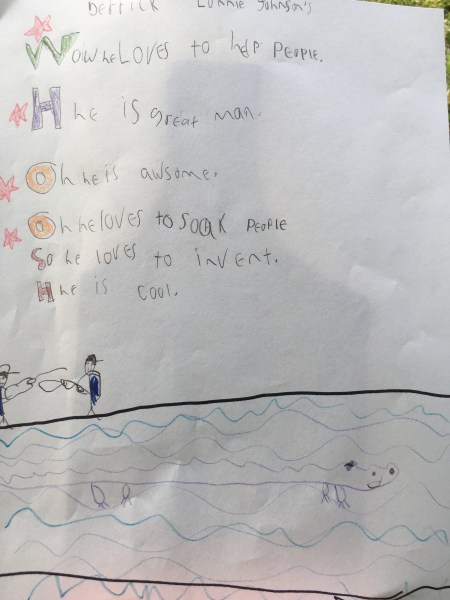 Derrick Lonnie Johnson's
Wow he Loves to help People.
H he is great man.
Oh he is awsome.
Oh he loves to soak People
So he loves to invent.
H he is cool.